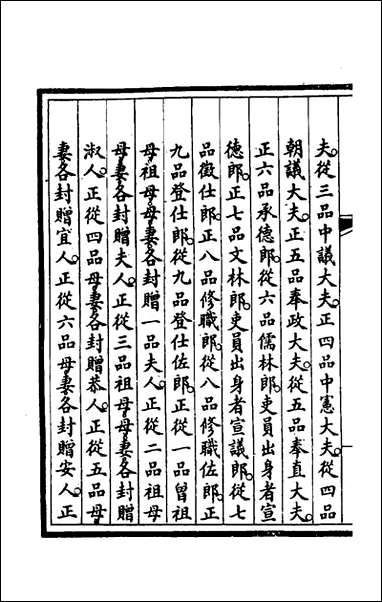 夫從三品中議大夫正四品中憲大夫從四品
朝議大夫正五品奉政大夫從五品奉直大夫
正六品承德郎從六品儒林郎吏員出身者宣
德郎正七品文林郎吏員出身者宣議郎從七
品徵仕郎正八品修職郎從八品修職佐郎正
九品登仕郎從九品登仕佐郎正從一品曾祖
母祖母母妻各封贈一品夫人正從二品祖母
母妻各封贈夫人正從三品祖母母妻各封贈
淑人正從四品母妻各封贈恭人正從五品母
妻各封贈宜人正從六品母妻各封贈安人正